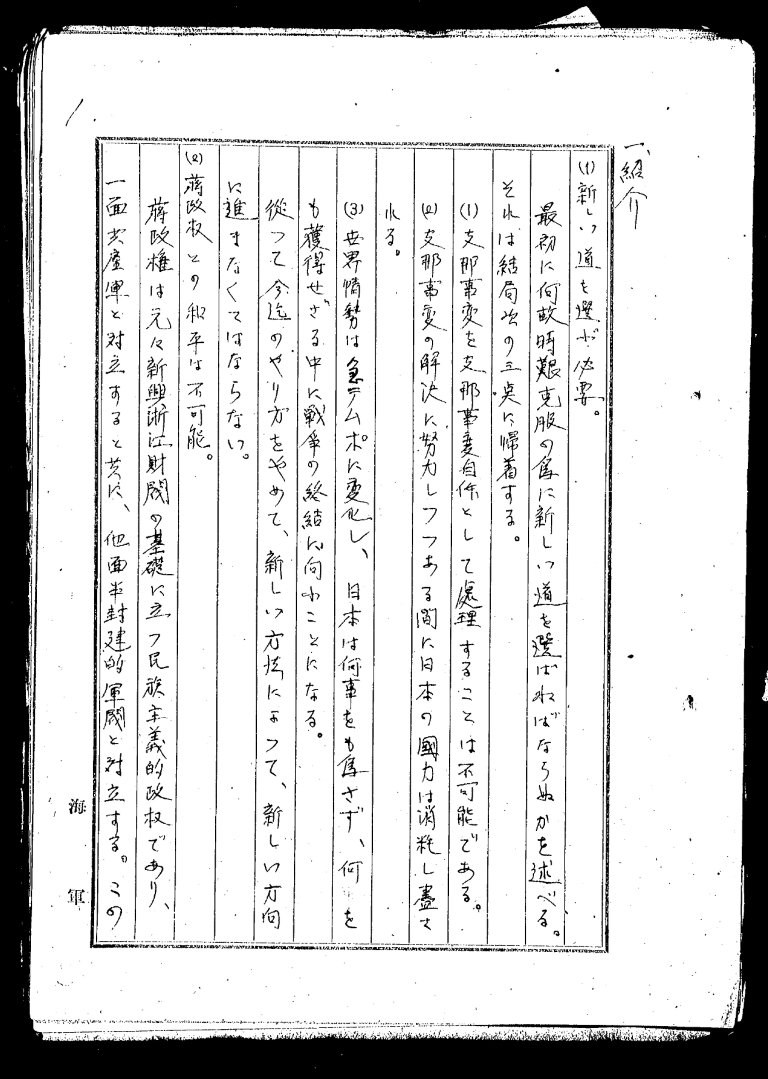 1.
一、紹介
(1)新しい道を選ぶ必要。
最初に何故時艱克服の爲に新しい道を選ばねばならぬかを述べる。
それは結局次の三点に帰着する。
(1)支那事変を支那事変自体として處理することは不可能である。
(2)支那事変の解決に努力しつつある間に日本の國力は消耗し盡さ
れる。
(3)世界情勢は急テムポに変化し、日本は何事をも爲さず、何をも
も獲得せざる中に戦争の終結に向ふことになる。
從つて今迄のやり方をやめて、新しい方法によつて、新しい方向
に進まなくてはならない。
(2)蔣政权との和平は不可能。
蔣政権は元々新興浙江財閥の基礎に立つ民族主義的政权であり、
一面共産軍と対立すると共に、他面半封建的軍閥と対立する。この
海軍